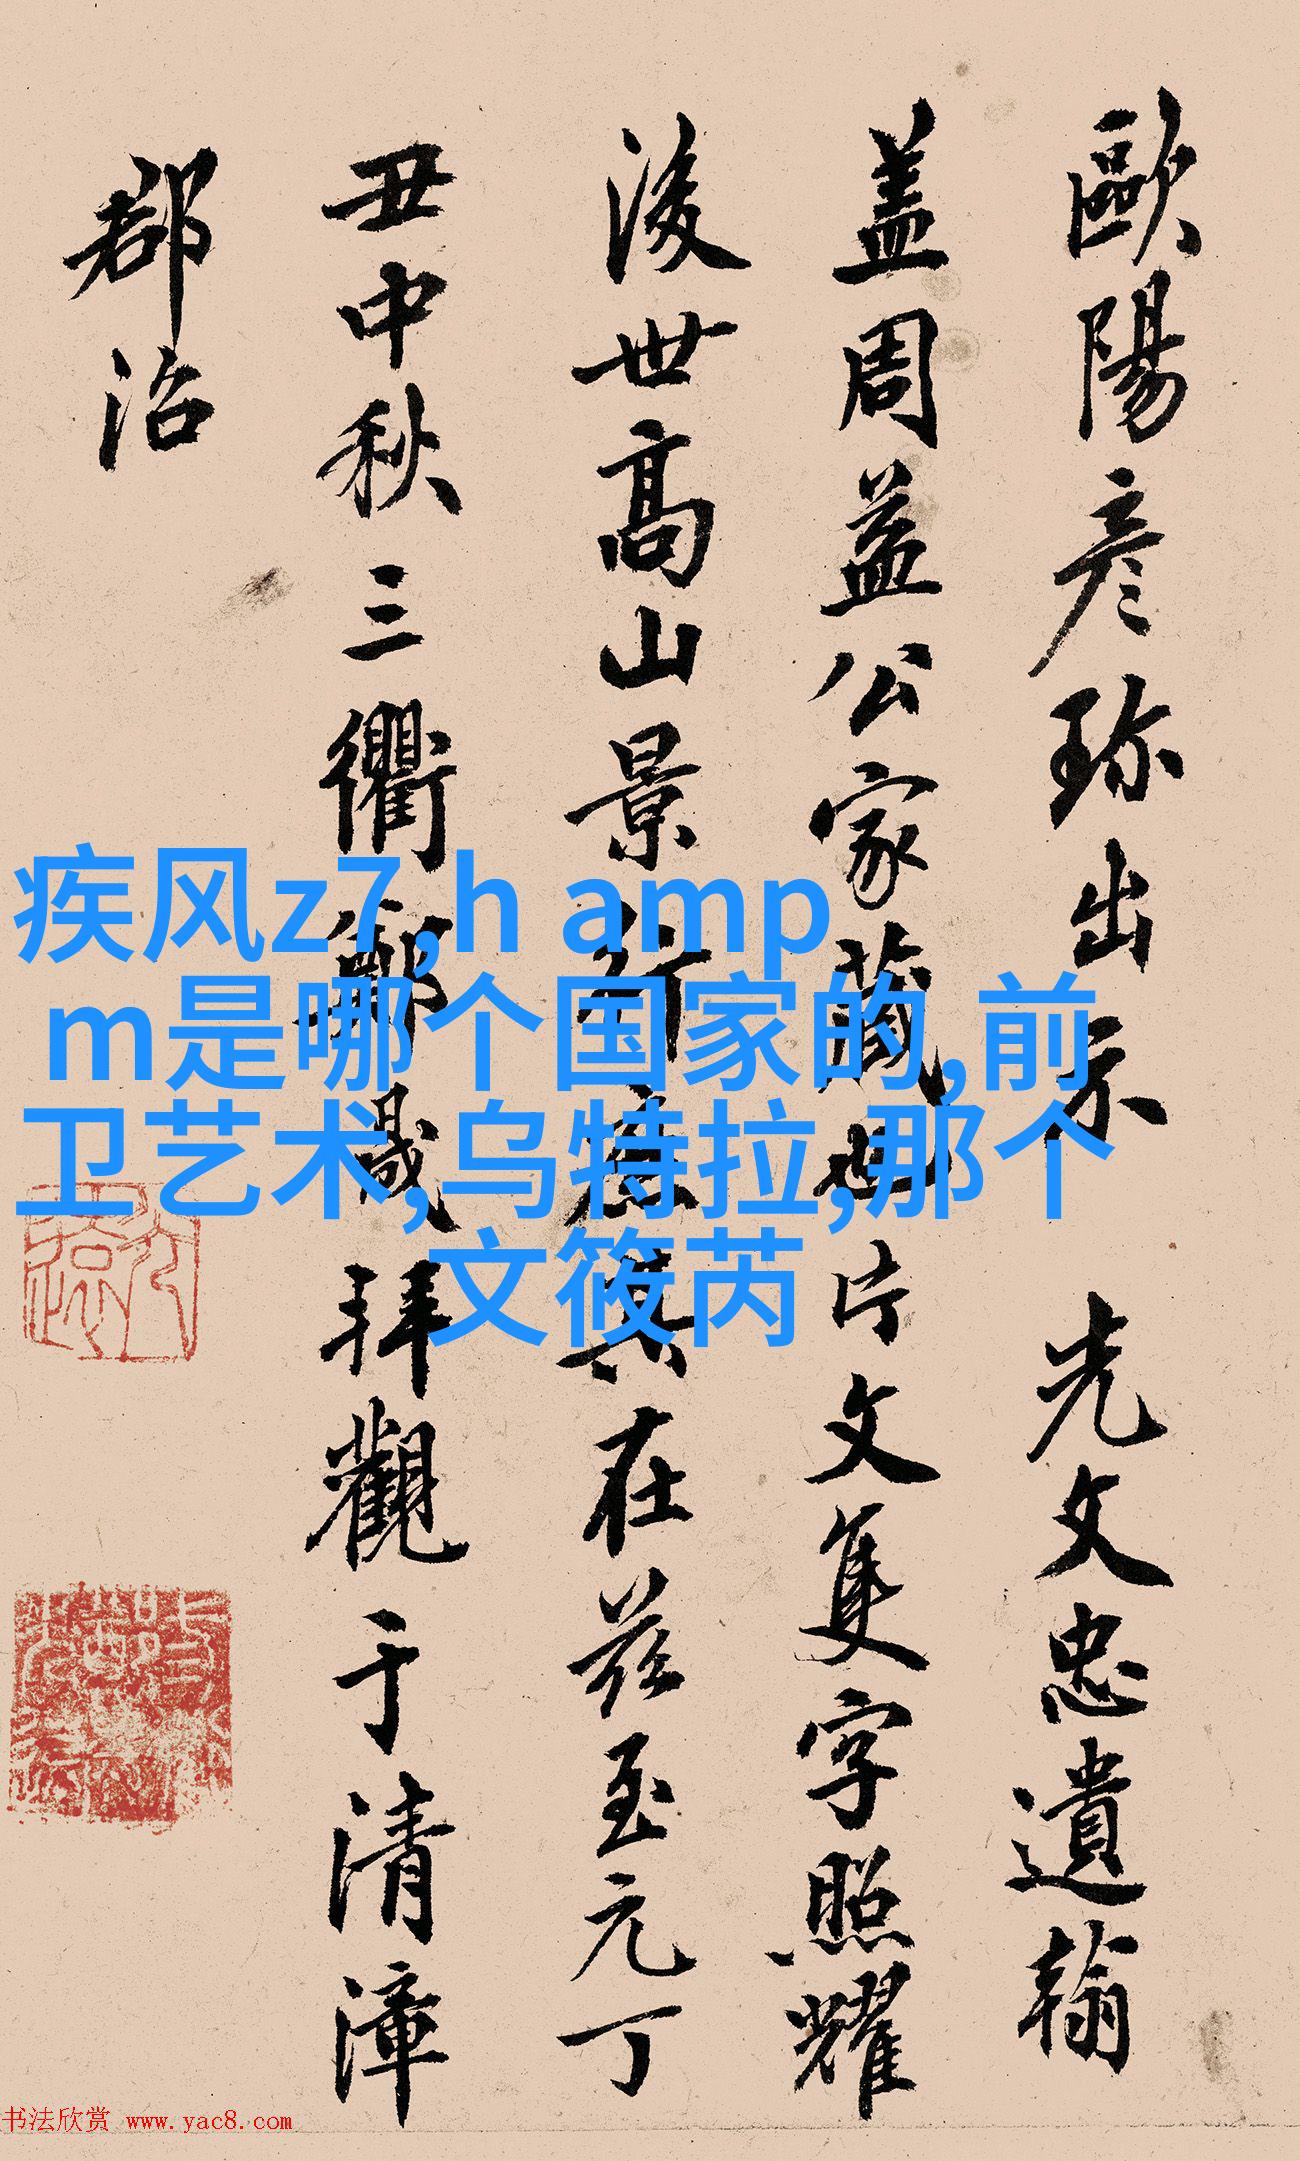 歐陽彦珎出示 光文忠遺翰
盖周益公家藏也片文隻字照耀
後世髙山景行意其在兹至元丁
丑中秋三衢鄭晟拜觀于清漳
郡治
疾风z7,h amp
m是哪个国家的,前
卫艺术,乌特拉,那个
文筱芮
书法欣赏 www.yac8.com